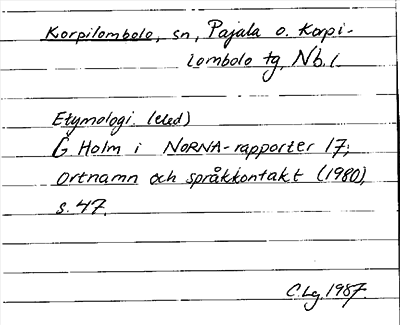 Korpilombolo, sn, Pajala o. Korpi-
lombolo tg, Nb.l.
Etymologi (led)
G Holm i NORNA-rapporter 17;
Ortnamn och språkkontakt (1980),
s. 47.
C.Lg. 1987.